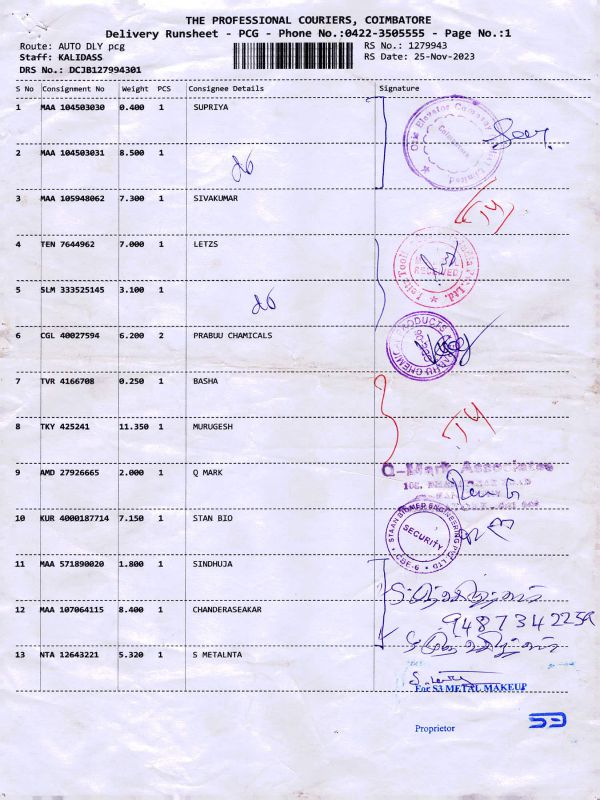 THE PROFESSIONAL COURIERS, COIMBATORE
Delivery Runsheet - PCG - Phone No.:0422-3505555 - Page No.:1
Route: AUTO DLY pcg
RS No.: 1279943
Staff: KALIDASS
RS Date: 25-Nov-2023
DRS No.: DCJB127994301
S No Consignment No Weight PCS Consignee Details Signature
1 MAA 104503030 0.400 1 SUPRIYA
2 MAA 104503031 8.500 1 do
3 MAA 105948062 7.300 1 SIVAKUMAR
4 TEN 7644962 7.000 1 LETZS
5 SLM 333525145 3.100 1 do
6 CGL 40027594 6.200 2 PRABUU CHAMICALS
7 TVR 4166708 0.250 1 BASHA
8 TKY 425241 11.350 1 MURUGESH
9 AMD 27926665 2.000 1 Q MARK
Q-Mark Associates
10 KUR 4000187714 7.150 1 STAN BIO
STAAN BIOMED ENGINEERING PVT LTD
SECURITY
CBE-6
11 MAA 571890020 1.800 1 SINDHUJA
12 MAA 107064115 8.400 1 CHANDERASEAKAR
13 NTA 12643221 5.320 1 S METALNTA
For S3 METAL MAKEUP
S3
Proprietor